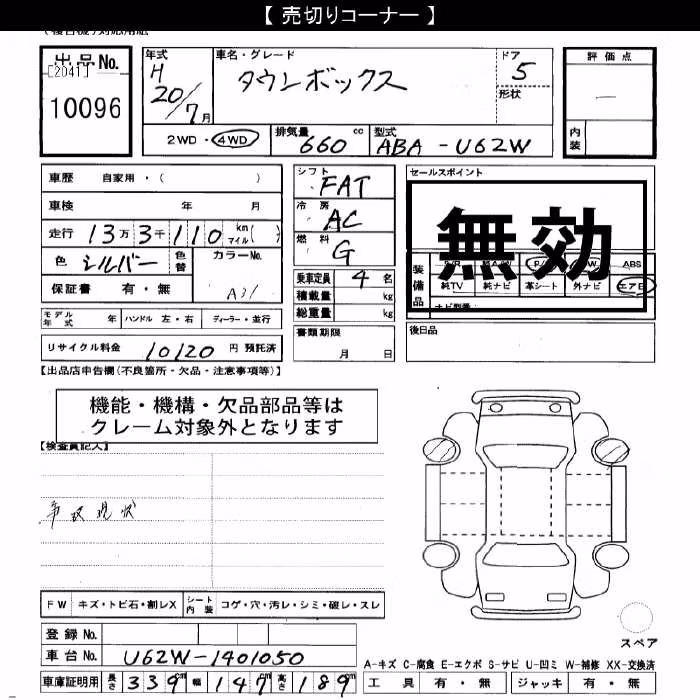 【 売切りコーナー 】
出品No. [2041] 10096
年式 H 20/7月
車名・グレード タウンボックス
ドア 5
形状
評価点 —
内装
2WD・4WD 排気量 660 cc 型式 ABA-U62W
車歴 自家用・( )
車検 年 月
走行 13万3千110 km マイル( )
色 シルバー 色替 カラーNo. A31
保証書 有・無
シフト FAT
冷房 AC
燃料 G
乗車定員 4 名
積載量 kg
総重量 kg
セールスポイント
無効
装備品 ABS
純TV 純ナビ 革シート 外ナビ エアB
ナビ型番
モデル年式 年 ハンドル 左・右 ディーラー・並行
リサイクル料金 10120 円 預託済
書類期限 月 日
後日品
【出品店申告欄(不良箇所・欠品・注意事項等)】
機能・機構・欠品部品等は
クレーム対象外となります
【検査員記入】
事故現状
FW キズ・トビ石・割レX シート内装 コゲ・穴・汚レ・シミ・破レ・スレ
登録No.
車台No. U62W-1401050
車庫証明用 長さ 339m 幅 147m 高さ 189m
スペア
A-キズ C-腐食 E-エクボ S-サビ U-凹ミ W-補修 XX-交換済
工具 有・無 ジャッキ 有・無